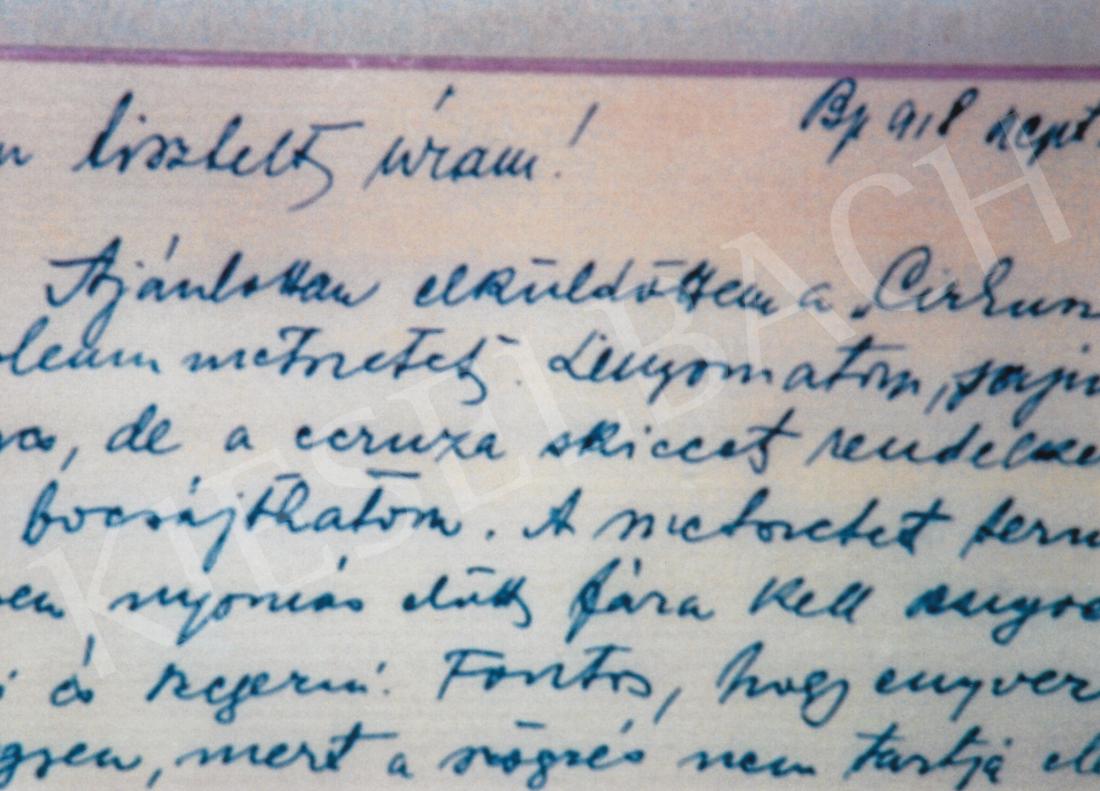 n tisztelt úram! Bp 918 szept.
Ajánlottan elküldöttem a „Cirkus
oleum metszetet. Lenyomatom, sajn
, de a ceruza skiccet rendelke
bocsájthatom. A metszetet term
en, nyomás előtt fára kell enyve
i és szegezni. Fontos, hogy enyvez
gyen, mert a szögzés nem tartja el
KIESELBACH